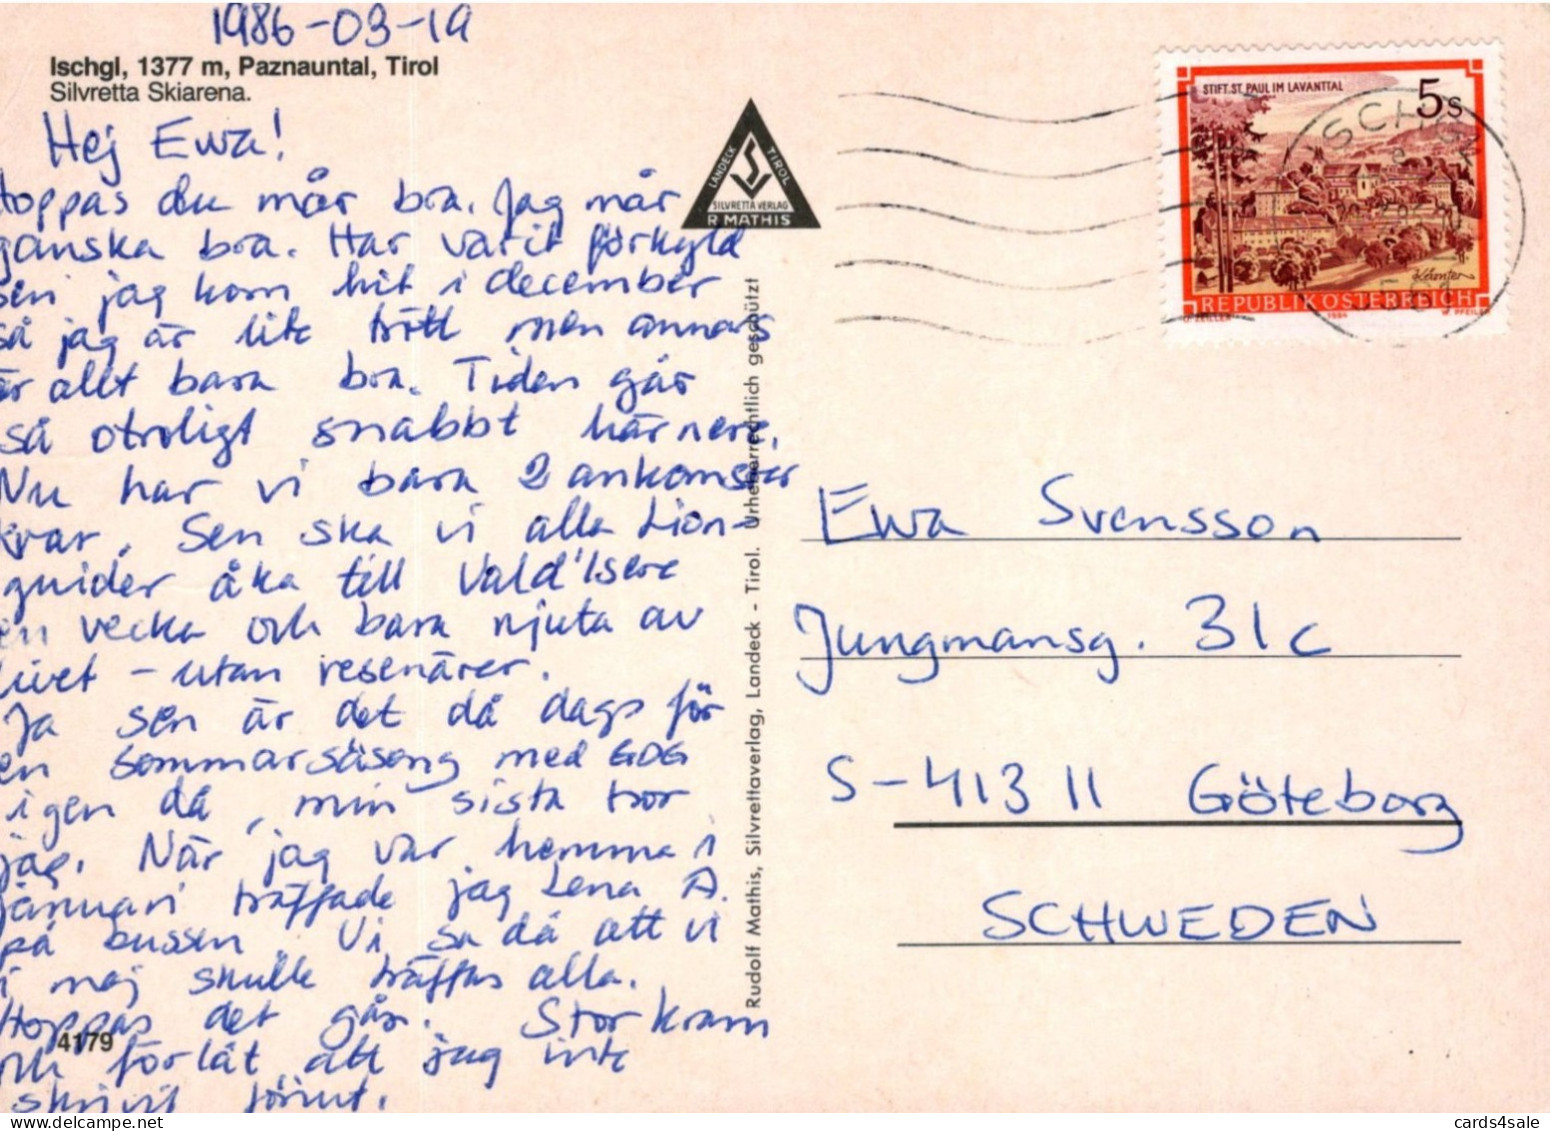 1986-03-19
Ischgl, 1377 m, Paznauntal, Tirol
Silvretta Skiarena.
Hej Ewa!
Hoppas du mår bra. Jag mår
ganska bra. Har varit förkyld
sen jag kom hit i december
så jag är lite trött men annars
är allt bara bra. Tiden går
så otroligt snabbt härnere.
Nu har vi bara 2 ankomster
kvar. Sen ska vi alla Lion-
guider åka till Vald'Isere
en vecka och bara njuta av
livet - utan resenärer.
Ja sen är det då dags för
en sommarsäsong med GDG
igen då, min sista tror
jag. När jag var hemma i
januari träffade jag Lena A.
på bussen. Vi sa då att vi
i maj skulle träffas alla.
Hoppas det går. Stor kram
och förlåt att jag inte
skrivit förrut.
4179
LANDECK TIROL
S
SILVRETTA VERLAG
R MATHIS
Rudolf Mathis, Silvrettaverlag, Landeck - Tirol. Urheberrechtlich geschützt
STIFT ST. PAUL IM LAVANTTAL
5s
REPUBLIK ÖSTERREICH
1984
O. ZEILLER
PFEILER
ISCHGL
Ewa Svensson
Jungmansg. 31c
S-413 11 Göteborg
SCHWEDEN
cards4sale